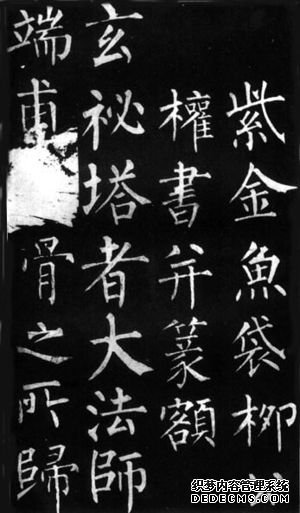 紫金魚袋柳公
權書并篆額
玄祕塔者大法師
端甫骨之所歸
织梦内容管理系统
DEDECMS.COM